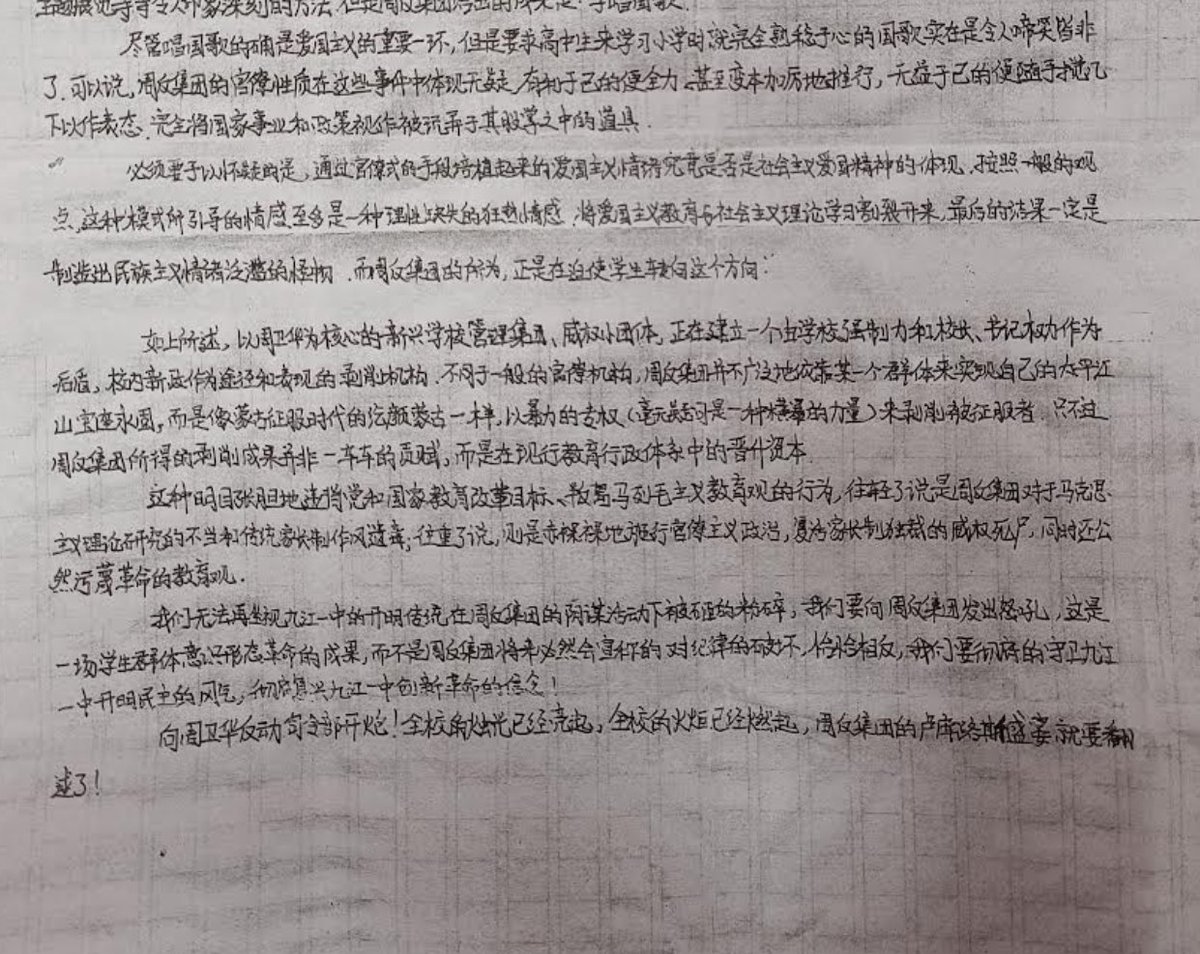 主题展览等等令人印象深刻的方法,但是周反集团得出的成果是:学唱国歌.
尽管唱国歌的确是爱国主义的重要一环,但是要求高中生来学习小学时就完全熟稔于心的国歌实在是令人啼笑皆非
了.可以说,周反集团的官僚性质在这些事件中体现无疑,有利于己的便全力、甚至变本加厉地推行,无益于己的便随手挑几
下以作表态.完全将国家事业和政策视作被玩弄于其股掌之中的道具.
必须要予以怀疑的是,通过官僚式的手段培植起来的爱国主义情绪究竟是否是社会主义爱国精神的体现.按照一般的观
点,这种模式所引导的情感至多是一种理性缺失的狂热情感.将爱国主义教育与社会主义理论学习割裂开来,最后的结果一定是
制造出民族主义情绪泛滥的怪物.而周反集团的所为,正是在迫使学生转向这个方向.
如上所述,以周卫华为核心的新兴学校管理集团、威权小团体,正在建立一个由学校强制力和校长、书记权力作为
后盾,校内新政作为途径和表现的剥削机构.不同于一般的官僚机构,周反集团并不广泛地依靠某一个群体来实现自己的太平江
山宝座永固,而是像蒙古征服时代的蒙古一样,以暴力的专权(毫无疑问是一种横暴的力量)来剥削被征服者.只不过
周反集团所得的剥削成果并非一车车的贡赋,而是在现行教育行政体系中的晋升资本.
这种明目张胆地违背党和国家教育改革目标、敌马列毛主义教育观的行为,往轻了说是周反集团对于马克思
主义理论研究的不当和传统家长制作风遗毒;往重了说,则是赤裸裸地推行官僚主义政治,复活家长制独裁的威权死尸,同时还公
然污蔑革命的教育观.
我们无法再坐视九江一中的开明传统在周反集团的阴谋活动下被碰的粉碎,我们要向周反集团发出怒吼,这是
一场学生群体意识形态革命的成果,而不是周反集团将来必然会宣称的对纪律的破坏.恰恰相反,我们要彻底的守卫九江
一中开明民主的风气,彻底复兴九江一中创新革命的信念!
向周卫华反动司令部开炮!全校的烛光已经亮起,全校的火炬已经燃起,周反集团的卢席路斯盛宴就要翻
过了!